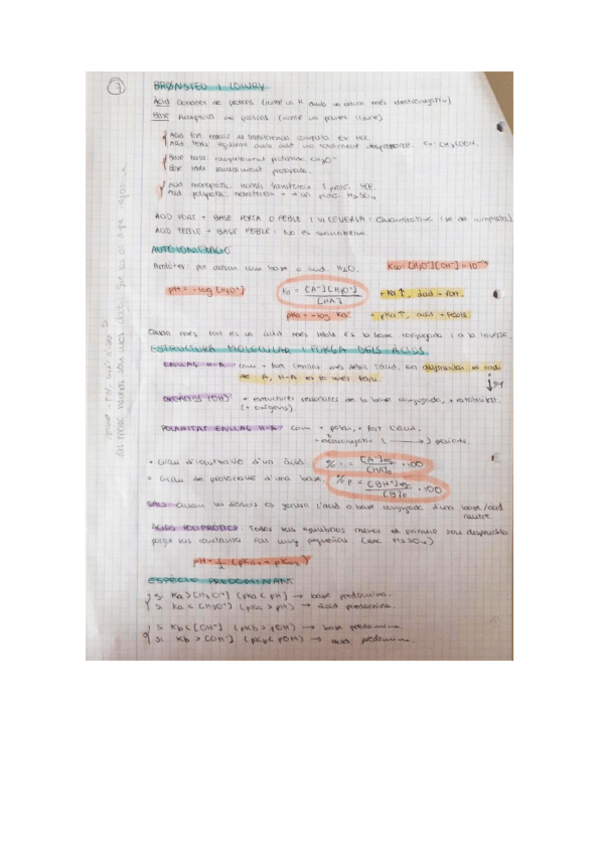 7
BRØNSTED I LOWRY
Àcid: Donador de protons (conté un H amb un àtom més electronegatiu)
Base: Acceptora de protons (conté un parell lliure)
Àcid fort: reacció de transferència completa. Ex: HCl.
Àcid feble: equilibri amb
Ex: CH3COOH.
Base forta: completament protonada
Base feble: parcialment protonada.
Àcid monopròtic: només transfereix 1 protó. HCl.
Àcid polipròtic: transfereix + d'un protó. H2SO4
ÀCID FORT + BASE FORTA O FEBLE I VICEVERSA: Quantitativa (és de completa)
ÀCID FEBLE + BASE FEBLE: No és quantitativa.
AUTOIONITZACIÓ
Amfòter: pot actuar com base o àcid. H2O.
Kw = [H3O+][OH-] = 10^-14
pH = -log [H3O+]
Ka = [A-][H3O+] / [HA]
+ Ka ↑, àcid + fort.
pKa = -log Ka
+ pKa ↑, àcid + feble.
Quan més fort és un àcid més feble és la base conjugada i a la inversa.
ESTRUCTURA MOLECULAR I FORÇA DELS ÀCIDS
ENLLAÇ H-A
com + fort l'enllaç més dèbil l'àcid. En augmentar el radi
de A, H-A es fa més feble.
OXOÀCIDS (OH)
+ estructures ressonants de la base conjugada, + estabilitat.
(+ oxígens)
POLARITAT ENLLAÇ H-A
com + polar, + fort l'àcid.
+ electronegatiu (→) període
• Grau d'ionització d'un àcid:
% i = [A-]eq / [HA]0 · 100
• Grau de protonació d'una base:
% p = [BH+]eq / [B]0 · 100
SALS
Quan les dissols es genera l'àcid o base conjugada d'una base/àcid
neutre
ÀCIDS POLIPRÒTICS: Todos sus equilibrios menos el primero son despreciables
porque sus constantes son muy pequeñas. (exc H2SO4)
pH = 1/2 (pKa1 + pKa2)
ESPÈCIE PREDOMINANT
Si Ka > [H3O+] (pKa < pH) → base predomina.
Si Ka < [H3O+] (pKa > pH) → àcid predomina.
Si Kb < [OH-] (pKb > pOH) → base predomina
Si Kb > [OH-] (pKb < pOH) → àcid predomina.